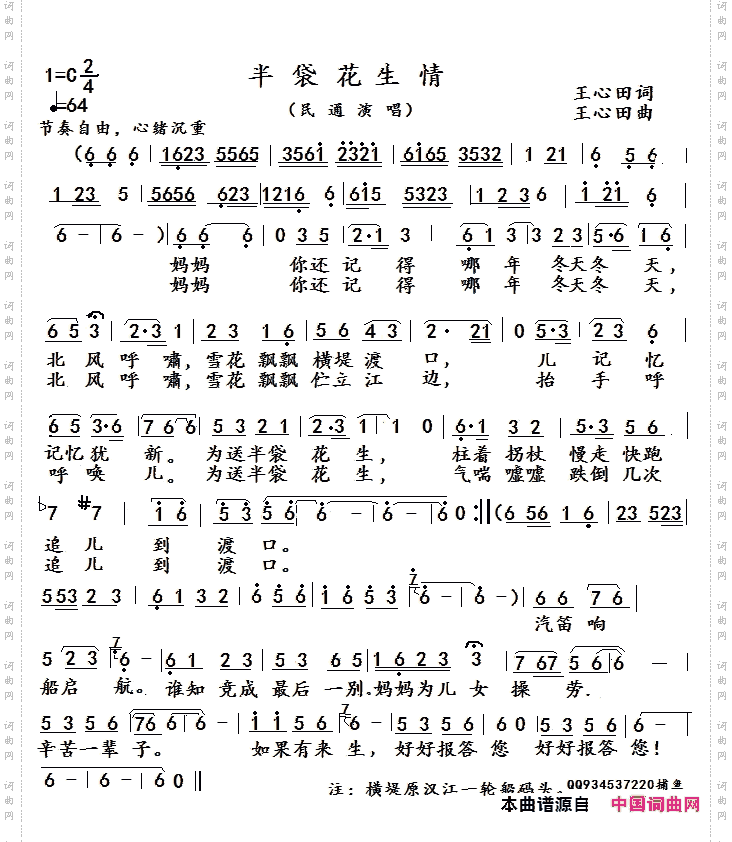 半袋花生情
1=C 2/4
♩=64
(民通演唱)
王心田词
王心田曲
节奏自由，心绪沉重
(6 6 6 | 1623 5565 | 3561 2321 | 6165 3532 | 1 21 | 6 5 6 |
1 23 5 | 5656 623 | 1216 6 | 615 5323 | 1 2 3 6 | 1 21 6 |
6 - | 6 - ) | 6 6 6 | 0 3 5 | 2·1 3 | 6 1 3 | 3 2 3 | 5·6 1 6 |
妈妈 你还记得 哪年冬天冬天，
妈妈 你还记得 哪年冬天冬天，
6 5 3 | 2·3 1 | 2 3 1 6 | 5 6 4 3 | 2· 21 | 0 5·3 | 2 3 6 |
北风呼啸，雪花飘飘横堤渡口， 儿记忆
北风呼啸，雪花飘飘伫立江边， 抬手呼
6 5 3·6 | 7 6 6 | 5 3 2 1 | 2·3 1 | 1 1 0 | 6·1 3 2 | 3 5 5 6 |
记忆犹新。为送半袋花生， 柱着拐杖慢走快跑
呼唤儿。为送半袋花生， 气喘嘘嘘跌倒几次
b7 #7 | 1 6 | 5 3 5 6 | 6 - | 6 - | 6 0 :‖ (6 56 1 6 | 23 523 |
追儿到渡口。
追儿到渡口。
553 2 3 | 6 1 3 2 | 6 5 6 | 1 6 5 3 | 7 6 - | 6 - ) | 6 6 7 6 |
汽笛响
5 2 3 | 7 6 - | 6 1 2 3 | 5 3 5 6 | 1 6 2 3 3 | 7 67 5 6 | 6 - |
船启航。谁知竞成最后一别.妈妈为儿女操劳.
5 3 5 6 | 76 6 | 6 - | 1 1 5 6 | 7 6 - | 5 3 5 6 | 6 0 | 5 3 5 6 | 6 - |
辛苦一辈子。 如果有来生，好好报答您 好好报答您！
6 - | 6 - | 6 0 ‖
注：横堤原汉江一轮船码头。
QQ934537220捕鱼
本曲谱源自 中国词曲网
词曲网